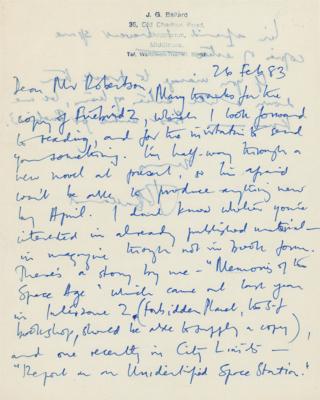 J. G. Ballard
36, Old Charlton Road,
Shepperton,
Middlesex.
26 Feb 83
Dear Mr Robertson, Many thanks for the
copy of Firebird 2, which I look forward
to reading, and for the invitation to send
you something. I'm half-way through a
new novel at present, so I'm afraid
won't be able to produce anything new
by April. I don't know whether you're
interested in already published material -
in magazine though not in book form.
There's a story by me - "Memories of the
Space Age" which came out last year
in Interzone 2 (Forbidden Planet, the S-f
bookshop, should be able to supply a copy),
and one recently in City Limits -
"Report on an Unidentified Space Station."